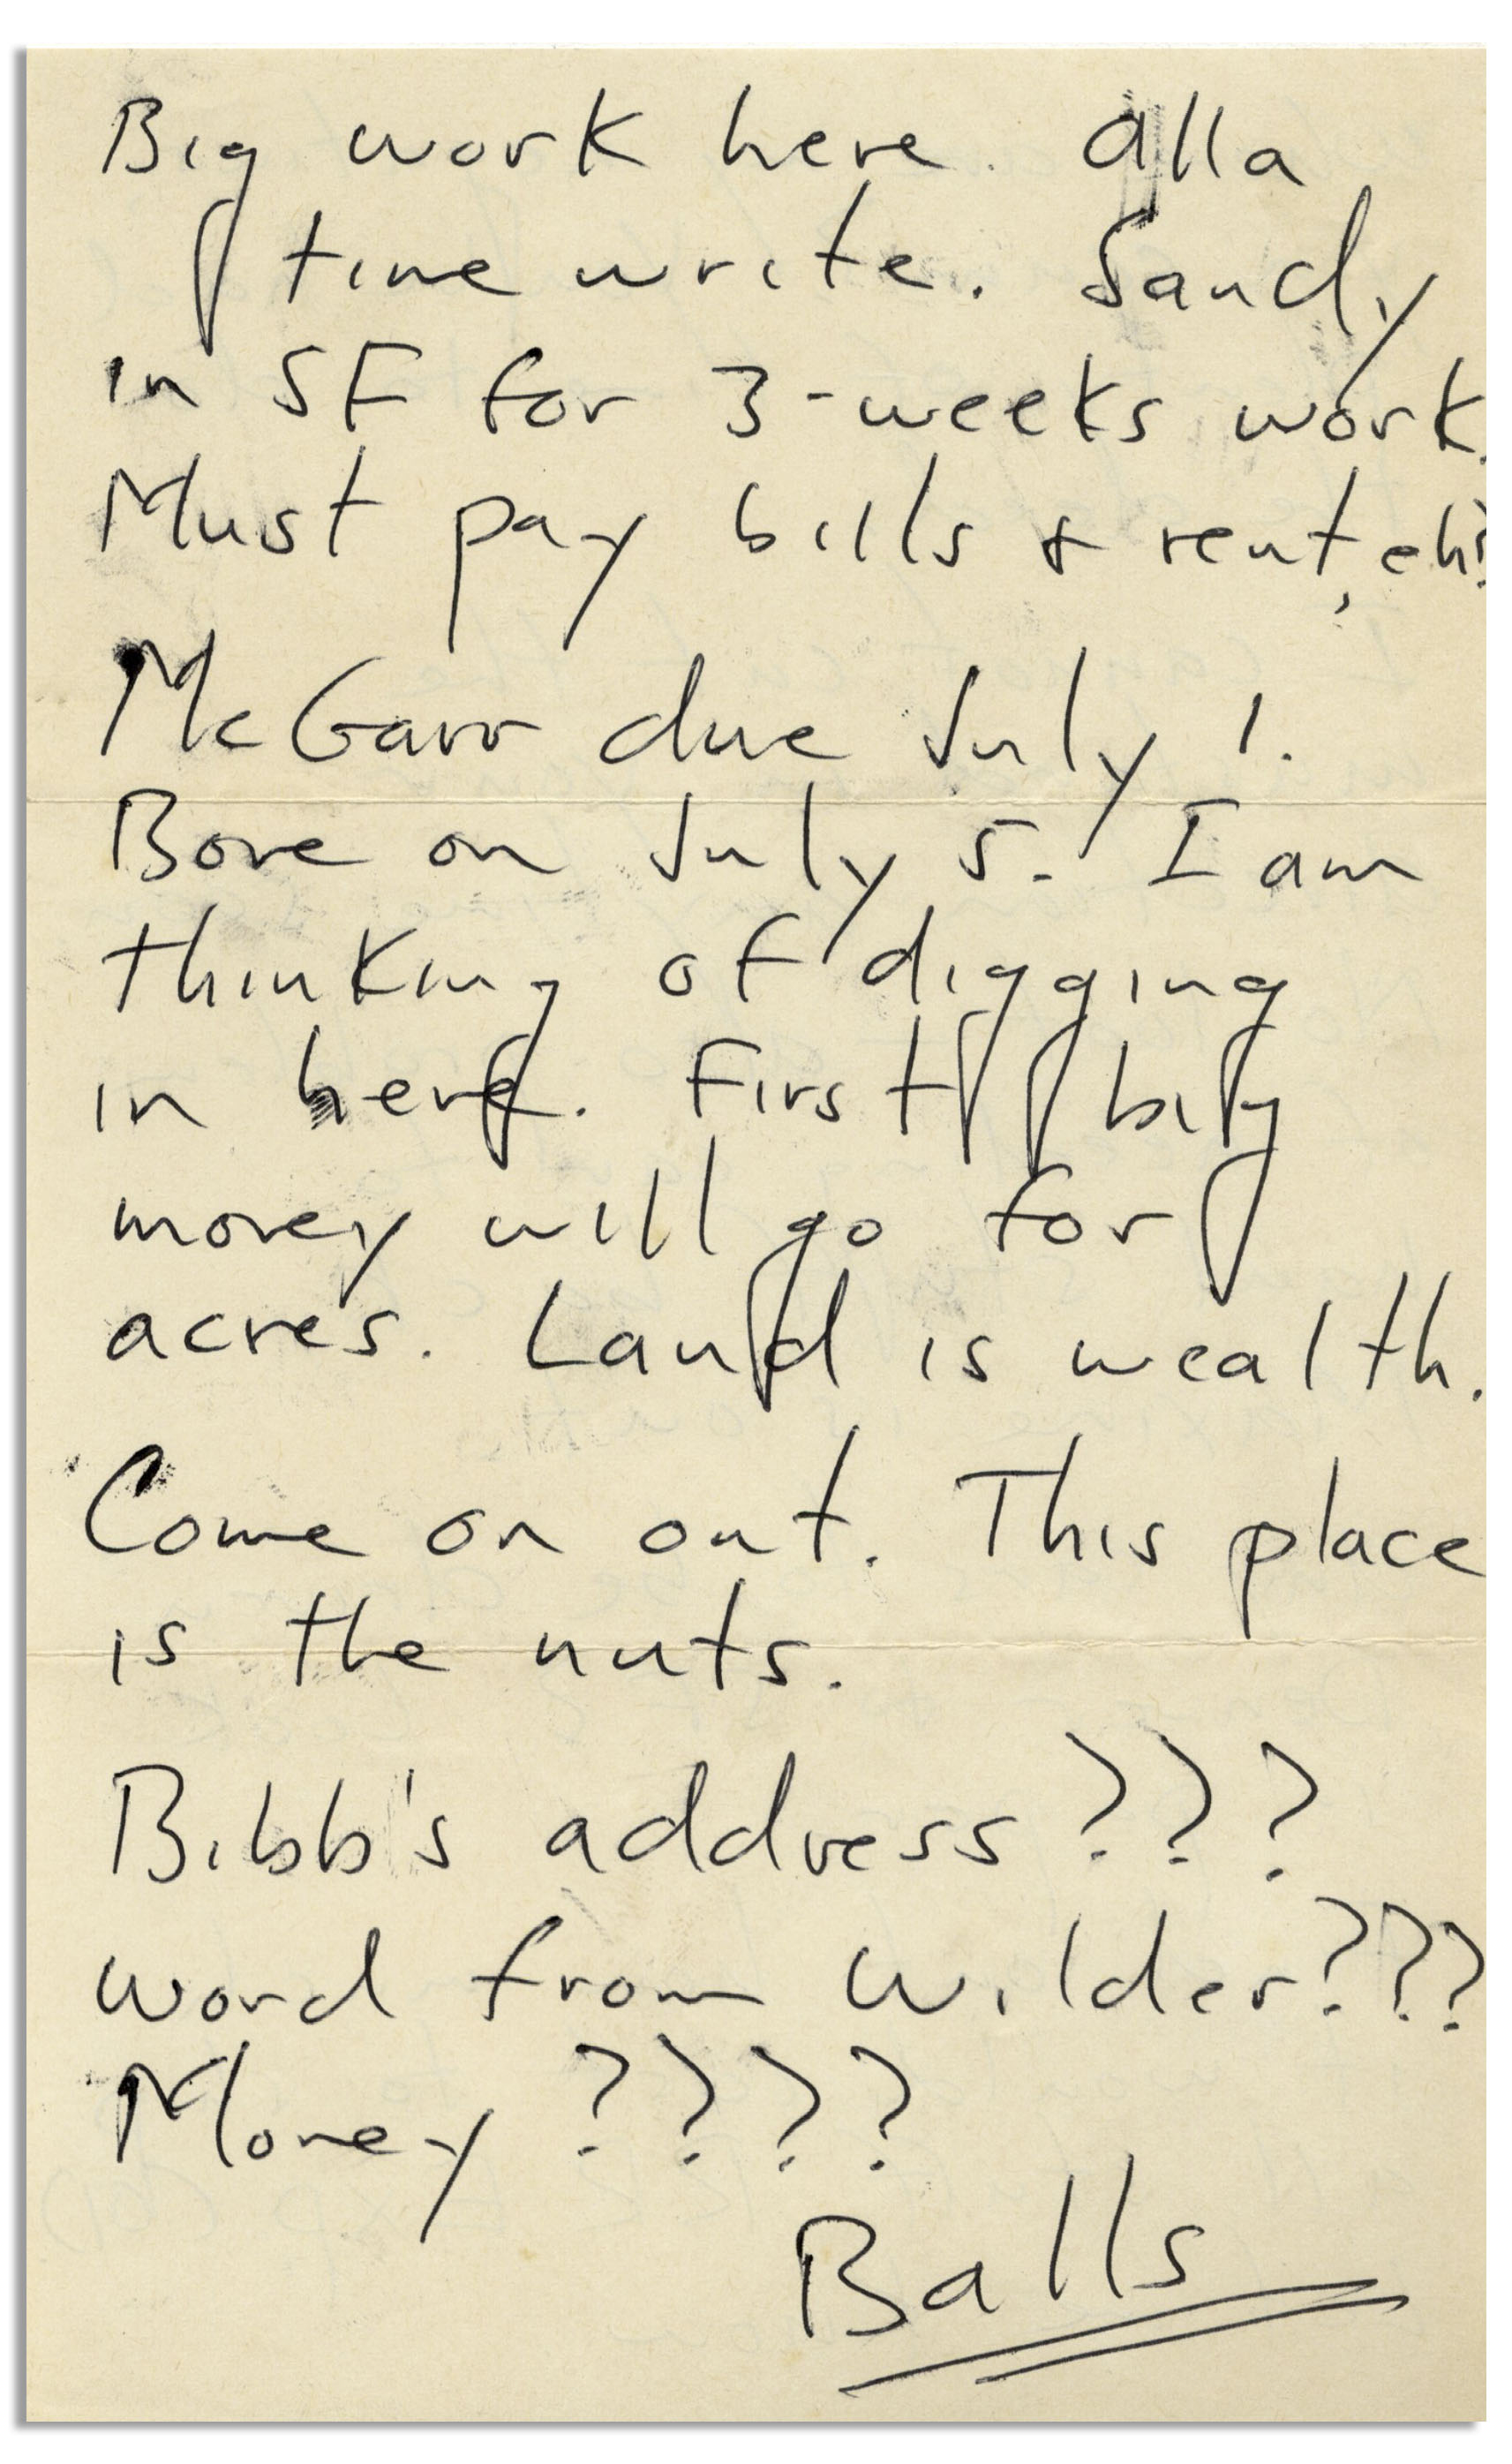 Big work here. Alla
time write. Sandy
in SF for 3-weeks work.
Must pay bills & rent, eh?
McGarr due July 1.
Bone on July 5. I am
thinking of digging
in here. First big
money will go for
acres. Land is wealth.
Come on out. This place
is the nuts.
Bibb's address???
Word from Wilder???
Money????
Balls